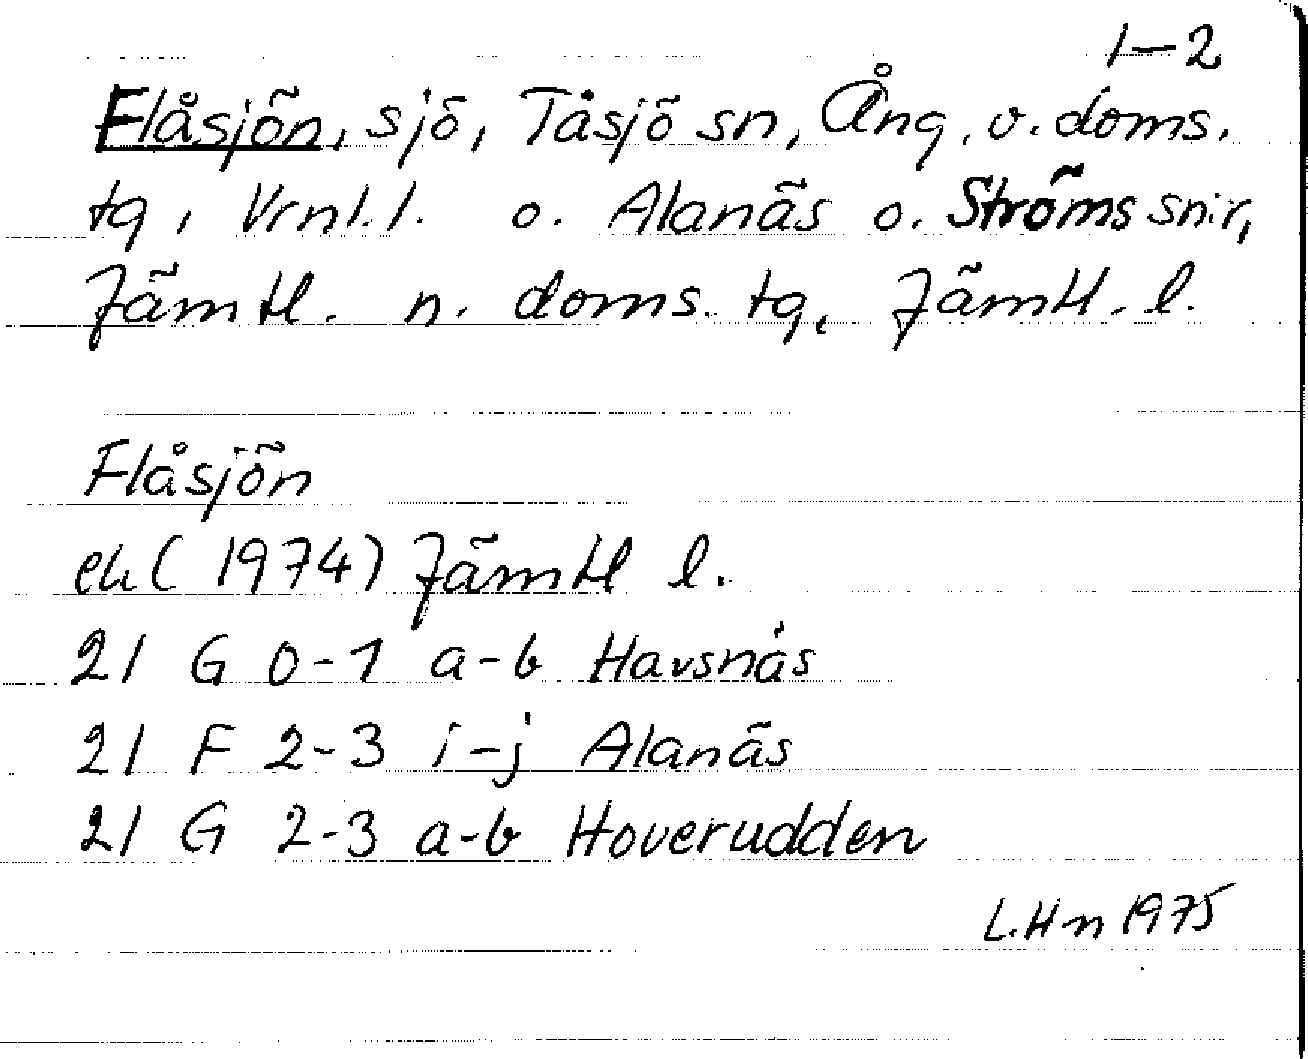 1–2
Flåsjön, sjö, Tåsjö sn, Ång. v. doms.
tg, Vrnl. l. o. Alanäs o. Ströms snr,
Jämtl. n. doms. tg, Jämtl. l.
Flåsjön
ek (1974) Jämtl l.
21 G 0-1 a-b Havsnäs
21 F 2-3 i-j Alanäs
21 G 2-3 a-b Hoverudden
L.Hn 1975